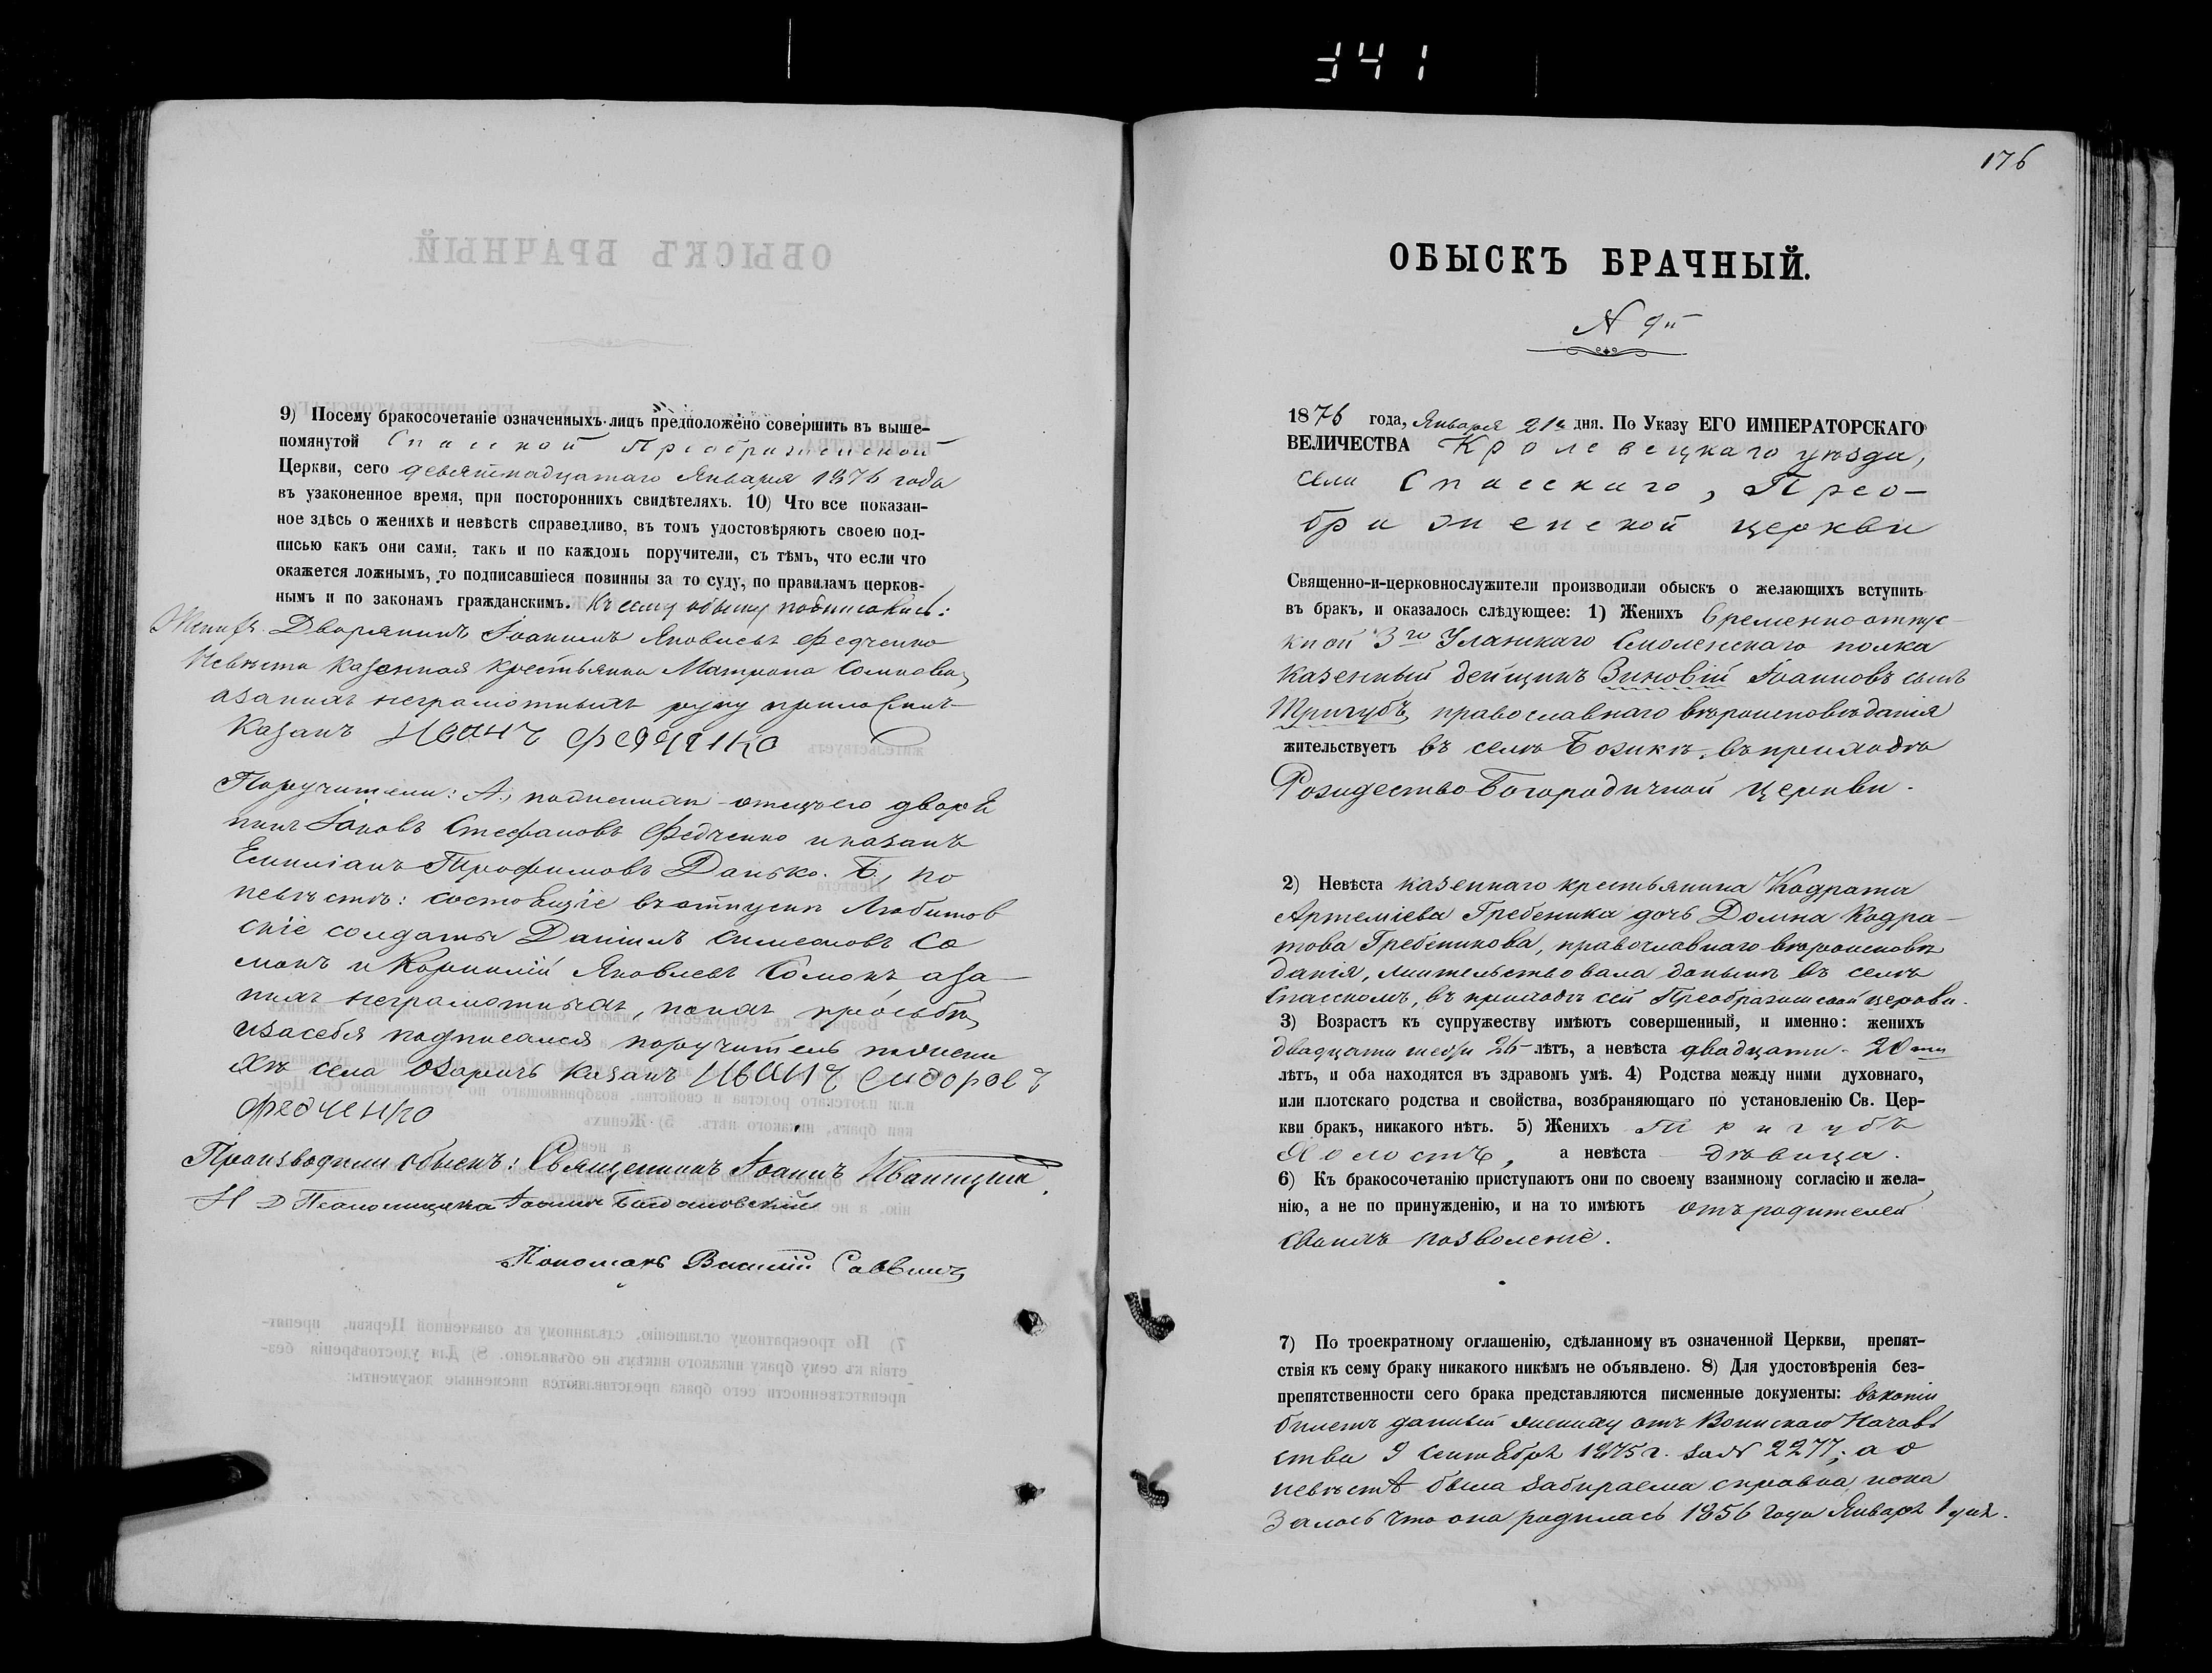 341
9) Посему бракосочетаніе означенныхъ лицъ предположено совершить въ выше-
помянутой Спасской Преображенской
Церкви, сего девятнадцатаго Января 1876 года
въ узаконенное время, при постороннихъ свидѣтеляхъ. 10) Что все показан-
ное здѣсь о женихѣ и невѣстѣ справедливо, въ томъ удостовѣряютъ своею под-
писью какъ они сами, такъ и по каждомъ поручители, съ тѣмъ, что если что
окажется ложнымъ, то подписавшіеся повинны за то суду, по правиламъ церков-
нымъ и по законамъ гражданскимъ. Къ сему обыску подписались:
Женихъ Дворянинъ Іоаннъ Яковлевъ Федченко
Невѣста казенная крестьянка Матрона
а за нихъ неграмотныхъ руку приложилъ
Казакъ Иванъ Федченко
Поручители: А, по женихѣ отецъ его дворя
нинъ Іаковъ Стефановъ Федченко и казакъ
Емиліанъ Трофимовъ Данько. Б, по
невѣстѣ: состоящіе въ отпуску Любитов
скіе солдаты Даніилъ Симеоновъ Со
монъ и Корнилій Яковлевъ Сомокъ, а за
нихъ неграмотныхъ, по ихъ просьбѣ,
и за себя подписался поручитель по жени
хѣ села Озаричъ казакъ Иванъ Сидоровъ
Федченко
Производили обыскъ: Священникъ Іоаннъ Иваницкій
И Д Псаломщика Іоаннъ
Пономарь Василій Саввичъ
176
ОБЫСКЪ БРАЧНЫЙ.
N 9й
1876 года, Января 21го дня. По Указу ЕГО ИМПЕРАТОРСКАГО
ВЕЛИЧЕСТВА Кролевецкаго уѣзда,
села Спасскаго, Прео-
браженской церкви
Священно-и-церковнослужители производили обыскъ о желающихъ вступить
въ бракъ, и оказалось слѣдующее: 1) Женихъ временно отпус-
кной 3го Уланскаго Смоленскаго полка
казенный денщикъ Зиновій Іоанновъ сынъ
Тригубъ, православнаго вѣроисповѣданія
жительствуетъ въ селѣ Божикѣ, въ приходѣ
Рождество Богородичной церкви.
2) Невѣста казеннаго крестьянина Кодрата
Артеміева Гребеника дочь Домна Кодра-
това Гребеникова, православнаго вѣроисповѣ
данія, жительствовала донынѣ въ селѣ
Спасскомъ, въ приходѣ сей Преображенской церкви.
3) Возрастъ къ супружеству имѣютъ совершенный, и именно: женихъ
двадцати шести 26 лѣтъ, а невѣста двадцати 20ти
лѣтъ, и оба находятся въ здравомъ умѣ. 4) Родства между ними духовнаго,
или плотскаго родства и свойства, возбраняющаго по установленію Св. Цер-
кви бракъ, никакого нѣтъ. 5) Женихъ Тригубъ
Холостъ, а невѣста дѣвица.
6) Къ бракосочетанію приступаютъ они по своему взаимному согласію и жела-
нію, а не по принужденію, и на то имѣютъ отъ родителей
своихъ позволеніе.
7) По троекратному оглашенію, сдѣланному въ означенной Церкви, препят-
ствія къ сему браку никакого никѣмъ не объявлено. 8) Для удостовѣренія без-
препятственности сего брака представляются писменные документы: въ копіи
билетъ данный жениху отъ Воинскаго Началь
ства 9 Сентября 1875 г. за N 2277; а о
невѣстѣ была забираема справка, пока
залось что она родилась 1856 года Января 1 дня.